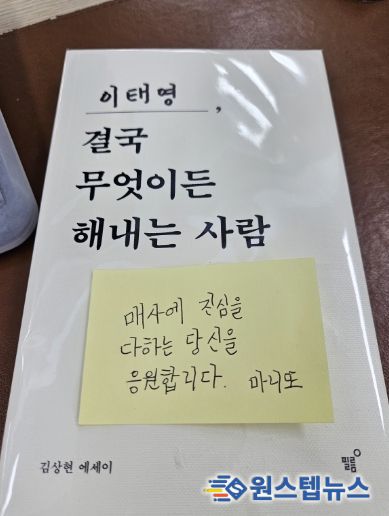 이태영,
결국
무엇이든
해내는 사람
매사에 진심을
다하는 당신을
응원합니다. 마니또
김상현 에세이
필름
원스텝뉴스